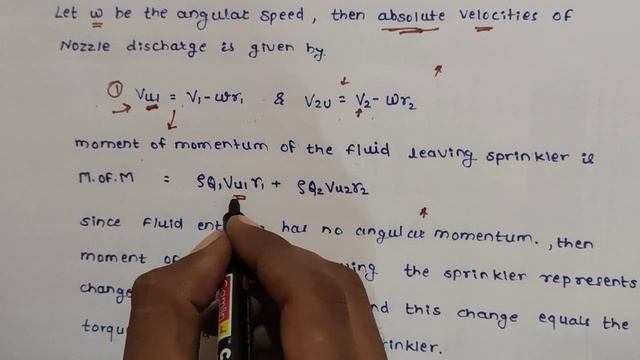 Let ω be the angular speed, then absolute velocities of
Nozzle discharge is given by.
① Vu1 = V1 - ωr1 & V2u = V2 - ωr2
moment of momentum of the fluid leaving sprinkler is
M.of.M = ρQ1Vu1r1 + ρQ2Vu2r2
since fluid has no angular momentum., then
moment of the sprinkler represents
change this change equals the